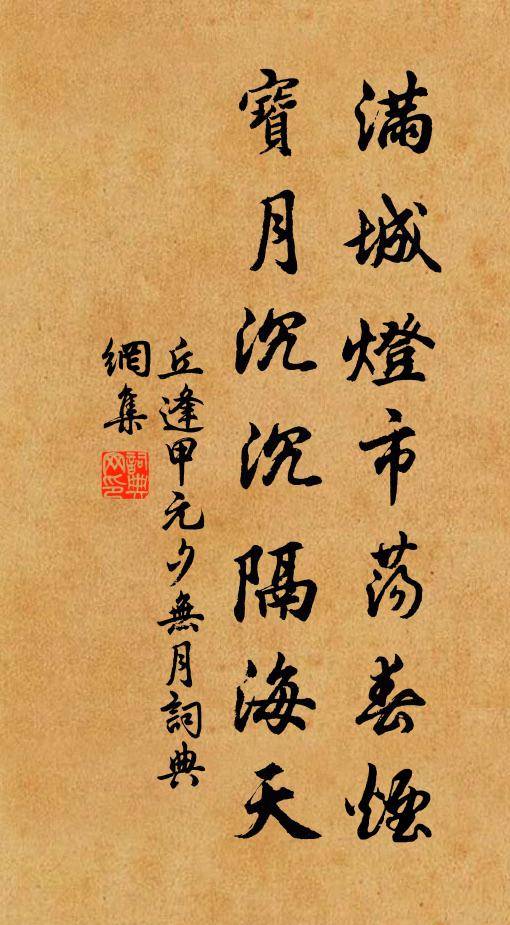 滿城燈市蕩春煙
寶月沉沉隔海天
丘逢甲元夕無月詞典
網集
詞典
網印